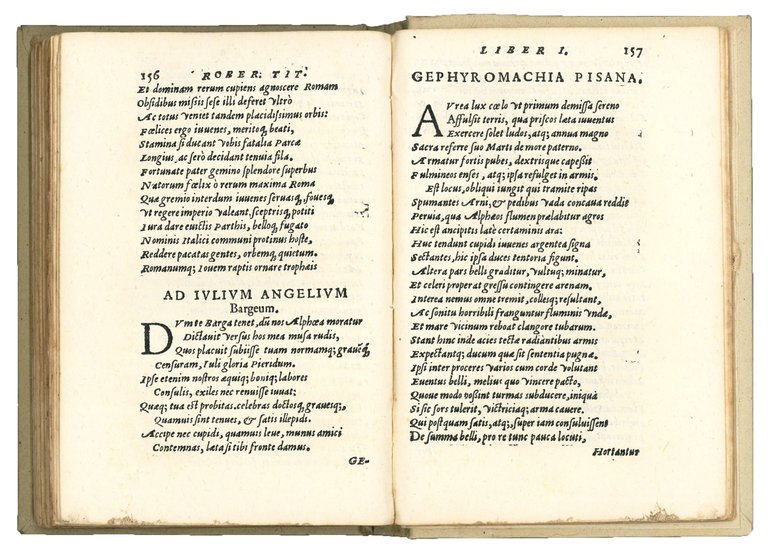 156 ROBER. TIT.
Et dominam rerum cupiens agnoscere Romam
Obsidibus missis sese illi deferet vltrò
Ac totus veniet tandem placidissimus orbis:
Fœlices ergo iuuenes, meritoq, beati,
Stamina si ducant vobis fatalia Parcæ
Longius, ac serò decidant tenuia fila.
Fortunate pater gemino splendore superbus
Natorum fœlix ò rerum maxima Roma
Quæ gremio interdum iuuenes seruasq, fouesq,
Vt regere imperio valeant, sceptrisq, potiti
Iura dare euictis Parthis, belloq, fugato
Nominis Italici communi protinus hoste,
Reddere pacatas gentes, orbemq, quietum.
Romanumq; Iouem raptis ornare trophæis
AD IVLIVM ANGELIVM
Bargeum.
DVm te Barga tenet, dũ nos Alphœa moratur
Dictauit versus hos mea musa rudis,
Quos placuit subiisse tuam normamq; grauẽq,
Censuram, Iuli gloria Pieridum.
Ipse etenim nostros æquiq; boniq; labores
Consulis, exiles nec renuisse iuuat:
Quæq; tua est probitas. celebras doctosq, grauesq;,
Quamuis sint tenues, & satis illepidi.
Accipe nec cupidi, quamuis leue, munus amici
Contemnas, læta si tibi fronte damus.
GE-
LIBER I. 157
GEPHYROMACHIA PISANA.
AVrea lux cœlo vt primum demissa sereno
Affulsit terris, qua priscos læta iuuentus
Exercere solet ludos, atq; annua magno
Sacra referre suo Marti de more paterno.
Armatur fortis pubes, dextrisque capessit
Fulmineos enses, atq; ipsa refulget in armis.
Est locus, obliqui iungit qui tramite ripas
Spumantes Arni, & pedibus vada concaua reddit
Peruia, qua Alphæos flumen prælabitur agros
Hic est ancipitis latè certaminis ara:
Huc tendunt cupidi iuuenes argentea signa
Sectantes, hic ipsa duces tentoria figunt.
Altera pars belli graditur, vultuq; minatur,
Et celeri properat gressu contingere arenam.
Interea nemus omne tremit, collesq; resultant,
Ac sonitu horribili franguntur fluminis vndæ,
Et mare vicinum reboat clangore tubarum.
Stant hinc inde acies tectæ radiantibus armis
Expectantq; ducum quæ sit sententia pugnæ.
Ipsi inter proceres varios cum corde volutant
Euentus belli, melius quo vincere pacto,
Quoue modo possint turmas subducere, iniquà
Si sic sors tulerit, victriciaq; arma cauere.
Qui postquam satis, atq; super iam consuluissent
De summa belli, pro re tunc pauca locuti,
Hortantur